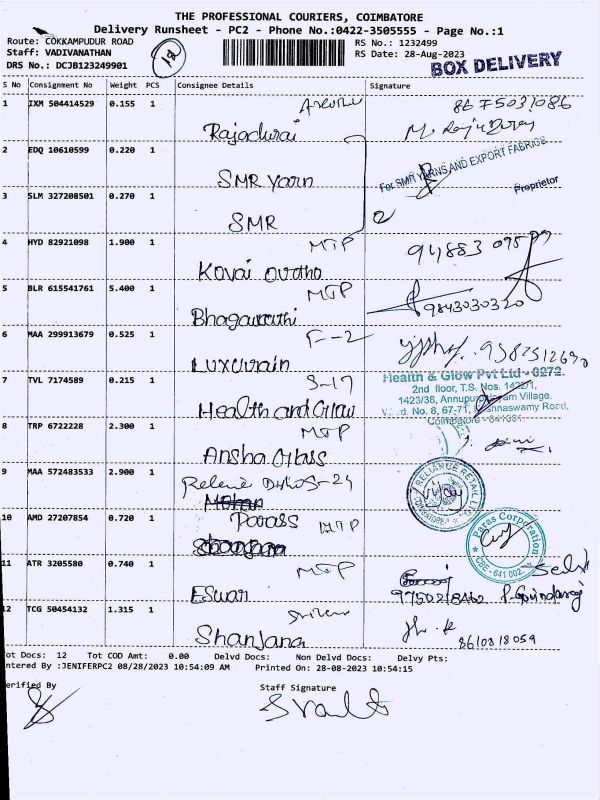 THE PROFESSIONAL COURIERS, COIMBATORE
Delivery Runsheet - PC2 - Phone No.:0422-3505555 - Page No.:1
Route: COKKAMPUDUR ROAD
RS No.: 1232499
Staff: VADIVANATHAN
RS Date: 28-Aug-2023
DRS No.: DCJB123249901
12
BOX DELIVERY
S No Consignment No Weight PCS Consignee Details Signature
1 IXM 504414529 0.155 1
8675031086
Rajadurai
2 EDQ 10610599 0.220 1
For SMR YARNS AND EXPORT FABRICS
SMR Yarn
Proprietor
3 SLM 327208501 0.270 1
SMR
2
4 HYD 82921098 1.900 1 MTP
Kovai
5 BLR 615541761 5.400 1 MTP
9843030320
6 MAA 299913679 0.525 1 F-2
7 TVL 7174589 0.215 1 S-19
Health & Glow Pvt Ltd - 0272.
2nd floor, T.S. Nos. 1422/1,
1423/38, Village,
No. 8, 67-71, Road,
Coimbatore - 641031.
Health and Glow
8 TRP 6722228 2.300 1 MTP
Ansha Glass
9 MAA 572483533 2.900 1 S-24
RELIANCE RETAIL LTD
COIMBATORE
10 AMD 27207854 0.720 1 Parass MTP
Paras Corporation
CBE - 641 002.
11 ATR 3205580 0.740 1 MTP
Eswari
9750218462
12 TCG 50454132 1.315 1
Shanjana
8610818059
Tot Docs: 12 Tot COD Amt: 0.00 Delvd Docs: Non Delvd Docs: Delvy Pts:
Entered By :JENIFERPC2 08/28/2023 10:54:09 AM Printed On: 28-08-2023 10:54:15
Verified By
Staff Signature